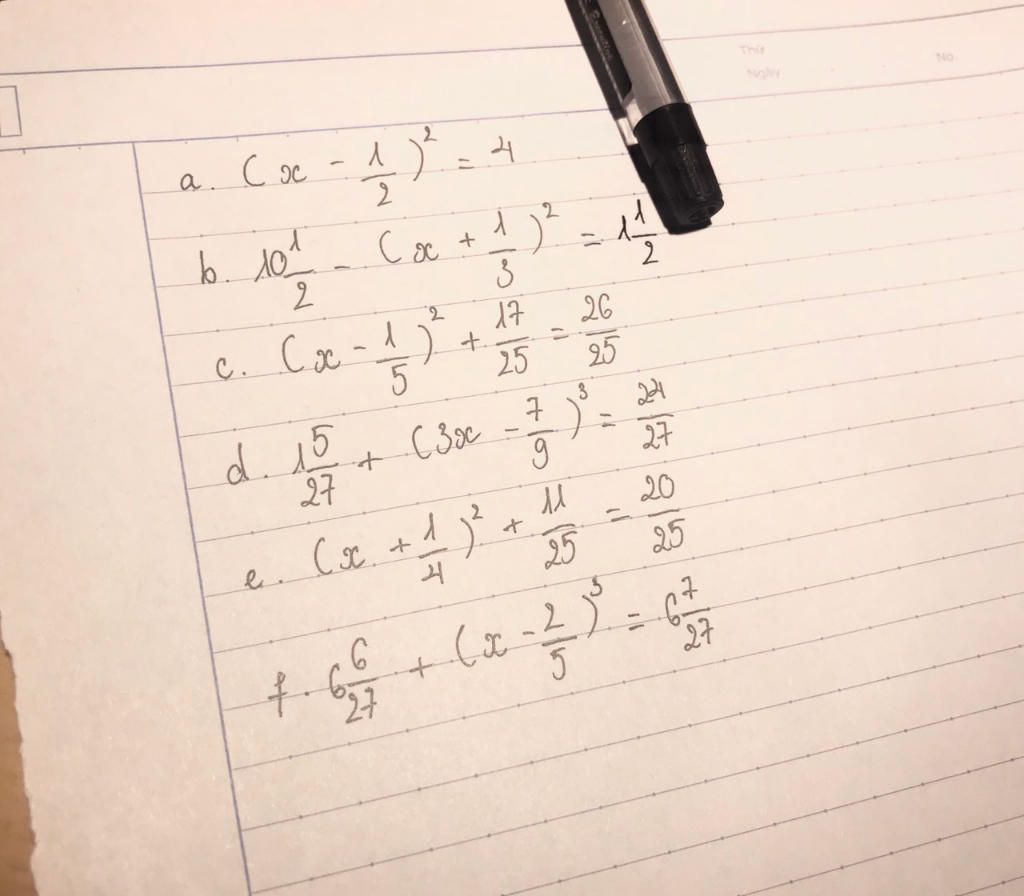 Thứ
Ngày
No.
a. (x - 1/2)² = 4
b. 10 1/2 - (x + 1/3)² = 1 1/2
c. (x - 1/5)² + 17/25 = 26/25
d. 1 5/27 + (3x - 7/9)³ = 24/27
e. (x + 1/4)² + 11/25 = 20/25
f. 6 6/27 + (x - 2/5)³ = 6 7/27